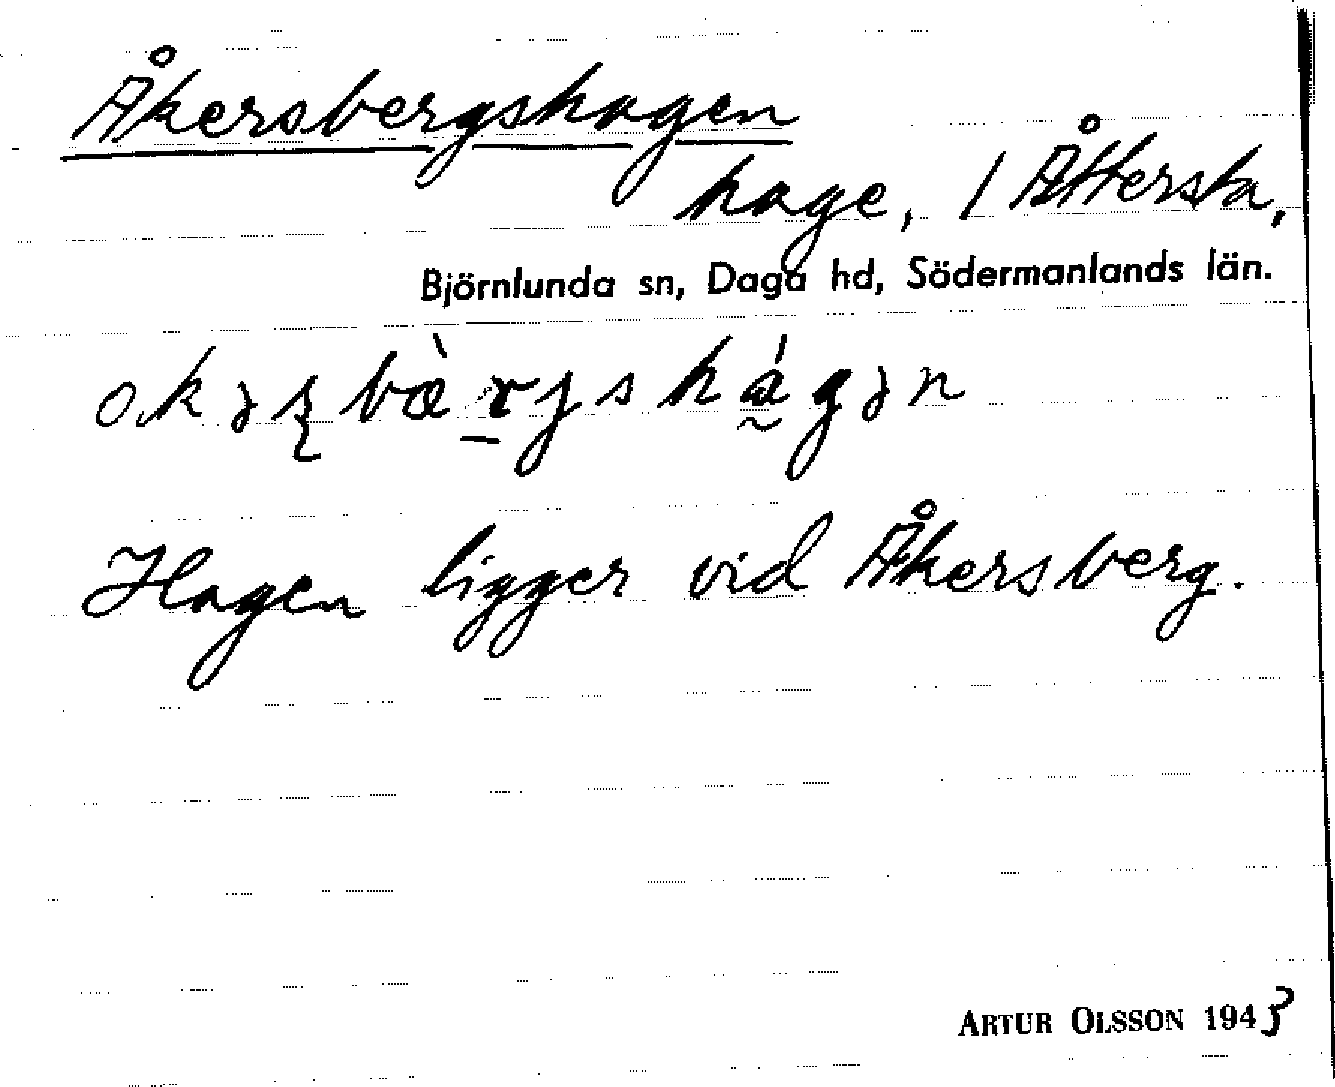 Åkersbergshagen
hage, / Åttersta,
Björnlunda sn, Daga hd, Södermanlands län.
Hagen ligger vid Åkersberg.
ARTUR OLSSON 1943